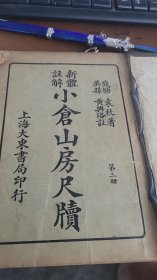 錢塘 袁枚著
吳縣 黃興洛註
新體
註解
小倉山房尺牘
第二冊
上海大東書局印行